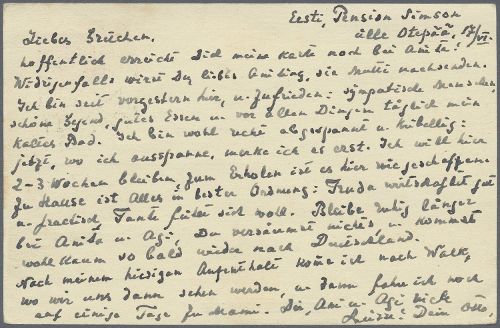 Eesti, Pension Simson
ülle Otepää, 17/VI.
Liebes
hoffentlich erreicht Dich meine Karte noch bei Anita!
Widrigenfalls wirst Du, liebes, sie Mutti nachsenden.
Ich bin seit vorgestern hier, u. zufrieden: sympatische Menschen,
schöne Gegend, gutes Essen u. vor allen Dingen täglich mein
kaltes Bad. Ich bin wohl recht abgespannt u. kribbelig:
jetzt, wo ich ausspanne, merke ich es erst. Ich will hier
2-3 Wochen bleiben, zum Erholen ist es hier wie geschaffen.
Zu Hause ist Alles in bester Ordnung: Truda wirtschaftet gut
u. practisch, Tante fühlt sich wohl. Bleibe ruhig länger
bei Anita u. Agi, Du versäumst nichts, u. kommst
wohl kaum so bald wieder nach Deutschland.
Nach meinem hiesigen Aufenthalt komme ich nach Walk,
wo wir uns dann sehen werden, u. dann fahre ich noch
auf einige Tage zu Mama. Dir, Ani u. Agi viele
Dein Otto.